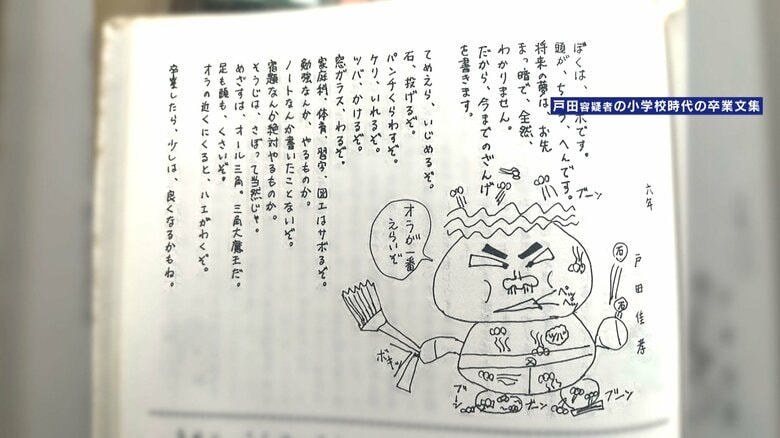 戸田容疑者の小学校時代の卒業文集
六年
戸田佳孝
ぼくは、です。
頭が、ちう、へんです。
将来の夢は、お先
まっ暗で、全然、
わかりません。
だから、今までのざんげ
を書きます。
てめえら、いじめるぞ。
石、投げるぞ。
パンチくらわすぞ。
ケリ、いれるぞ。
ツバ、かけるぞ。
窓ガラス、わるぞ。
家庭科、体育、習字、図工はサボるぞ。
勉強なんか、やるものか。
ノートなんか書いたことないぞ。
宿題なんか絶対やるものか。
そうじは、さぼって当然じゃ。
めざすは、オール三角。三角大魔王だ。
足も頭も、くさいぞ。
オラの近くにくると、ハエがわくぞ。
卒業したら、少しは、良くなるかもね。
ブーン
石
石
オラが一番
えらいぞ
ペッペッ
ツバ
ボキッ
ブーン
ブーン
ブーン